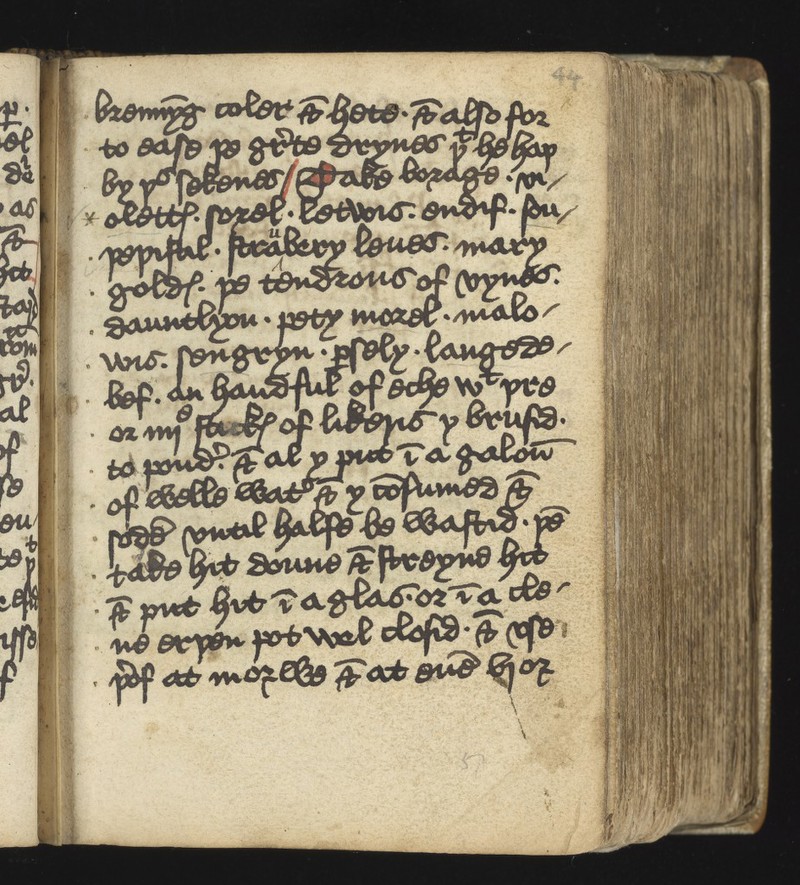 44
brennȳg coler & hete · & also for
to ease þe gͬte drynes þͭ he haþ
by þˢ sekenes / Take borage · vi-
olettꝭ · sorel · letwis · endif · sou-
þepistil · straͧbery leues · mary
goldꝭ · þe tendrons of vynes ·
dauntlyon · pety morel · malo-
wis · sengryn · ꝑsely · langede-
bef · an handful of eche wͭ þre
or iiijͤ stickꝭ of likeris y brusid ·
to poudͬ · & al y put ī a galoū
of welle watͬ & y cōsumed &
sodē vntil halfe be wastid · þē
take hit doune & streyne hit
& put hit ī a glas · or ī a cle-
ne erþen pot wel closid · & vse
þͬof at morwe & at euē vj or